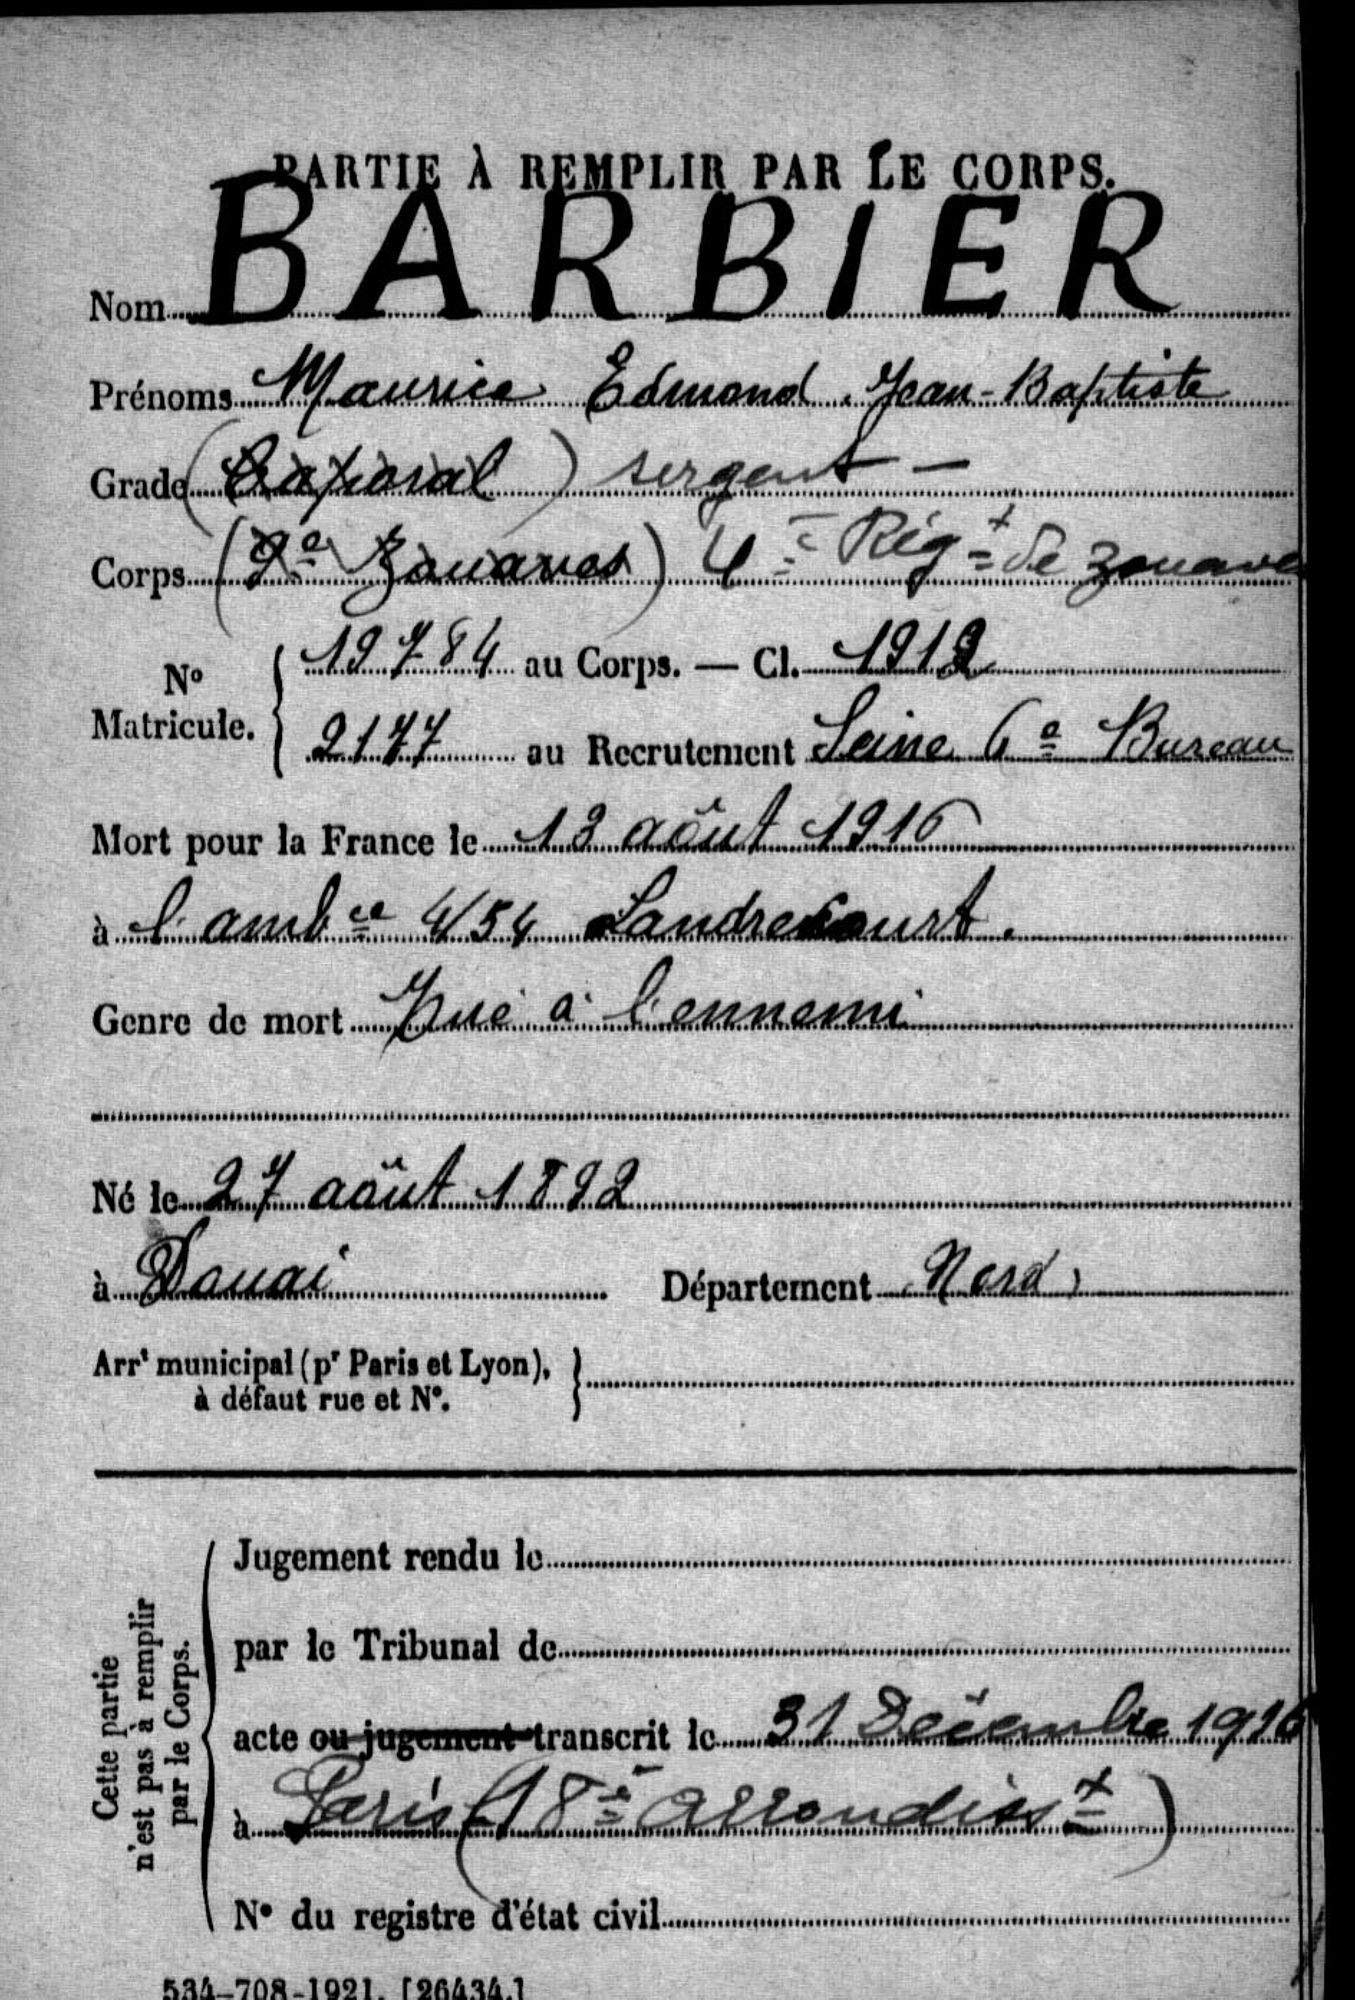 PARTIE À REMPLIR PAR LE CORPS.
Nom BARBIER
Prénoms Maurice Edmond Jean-Baptiste
Grade (Caporal) sergent —
Corps (9e Zouaves) 4e Régt de zouaves
No Matricule. { 19784 au Corps. — Cl. 1912
2177 au Recrutement Seine 6e Bureau
Mort pour la France le 13 août 1916
à l'ambce 4/54 Landrecourt.
Genre de mort Tué à l'ennemi
Né le 27 août 1892
à Douai Département Nord
Arrt municipal (pr Paris et Lyon), à défaut rue et No. }
Cette partie n'est pas à remplir par le Corps.
Jugement rendu le
par le Tribunal de
acte ou jugement transcrit le 31 Décembre 1916
à Paris (18e arrondisst)
No du registre d'état civil
534-708-1921. [26434.]